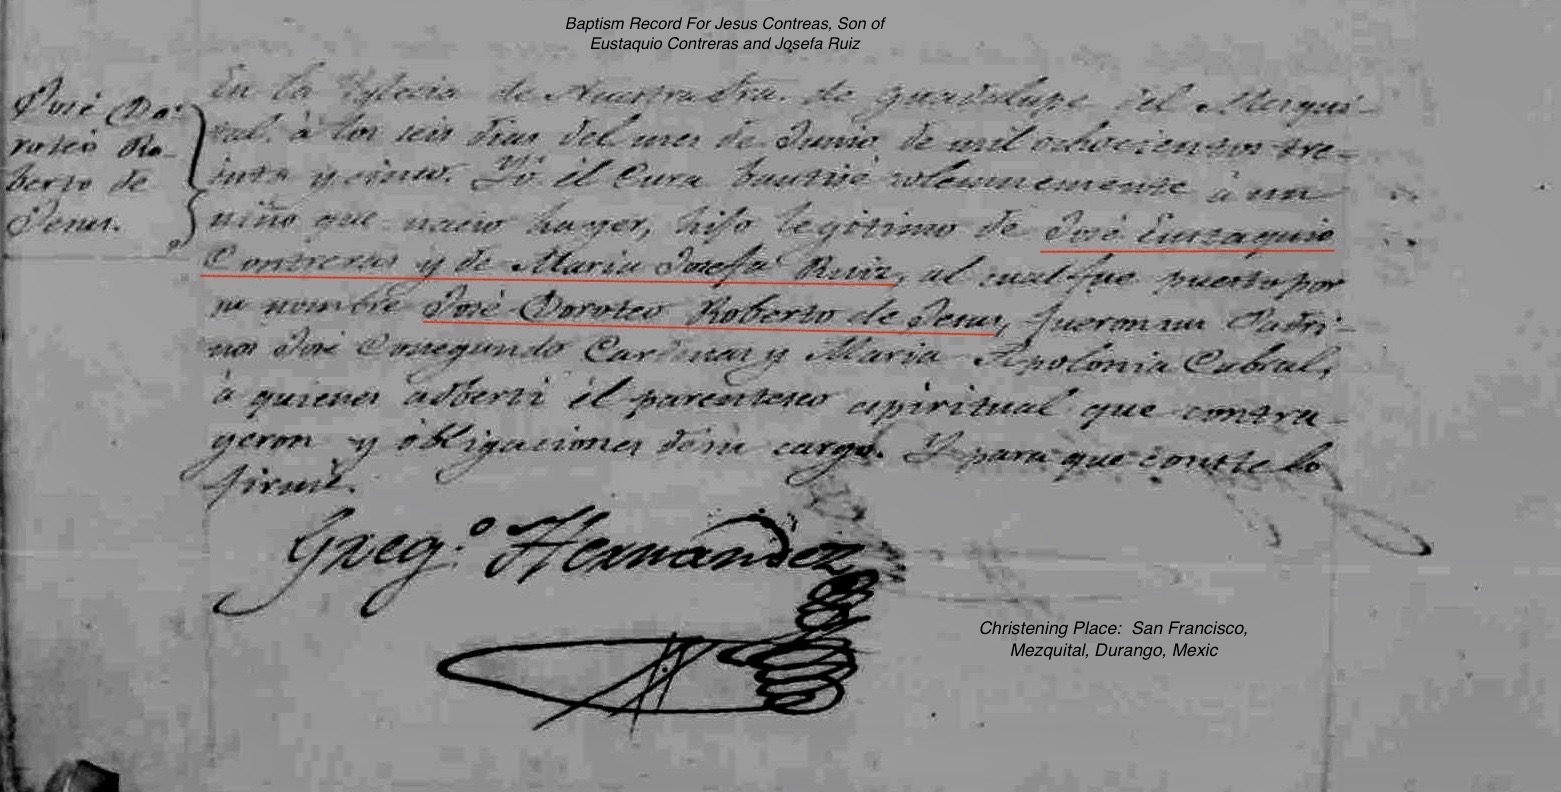 Baptism Record For Jesus Contreas, Son of
Eustaquio Contreras and Josefa Ruiz
José Do-
roteo Ro-
berto de
Jesus.
En la Yglesia de Nuestra Sra. de Guadalupe del Mezqui-
tal á los seis dias del mes de Junio de mil ochocientos tre-
inta y cinco. Yó el Cura bautisé solemnemente á un
niño que nacio hayer, hijo legitimo de José Eustaquio
Contreras y de Maria Josefa Ruiz, al cual fue puesto por
su nombre José Doroteo Roberto de Jesus, fueron sus Padri-
nos José Cardenas y Maria Apolonia Cabral,
á quienes adberti el parentesco espiritual que contra-
geron y obligaciones de su cargo. Y para que conste lo
firmé.
Greg.o Hernandez
Christening Place: San Francisco,
Mezquital, Durango, Mexic